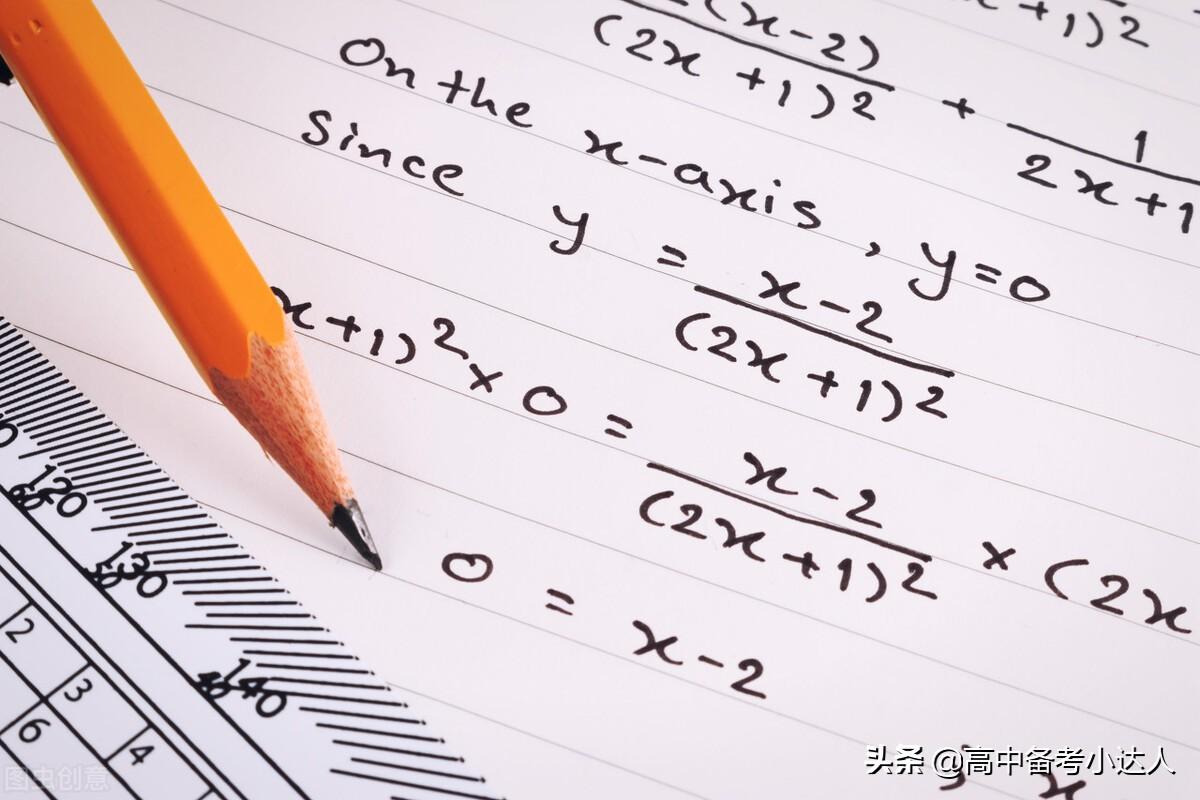 (x-2)
(2x+1)² + 1
2x+1
x+1)²
On the x-axis, y=0
Since y = x-2
(2x+1)²
x+1)² × 0 = x-2
(2x+1)² × (2x
0 = x-2
120
60
130
50
140
40
2
3
4
6
头条 @高中备考小达人
图虫创意